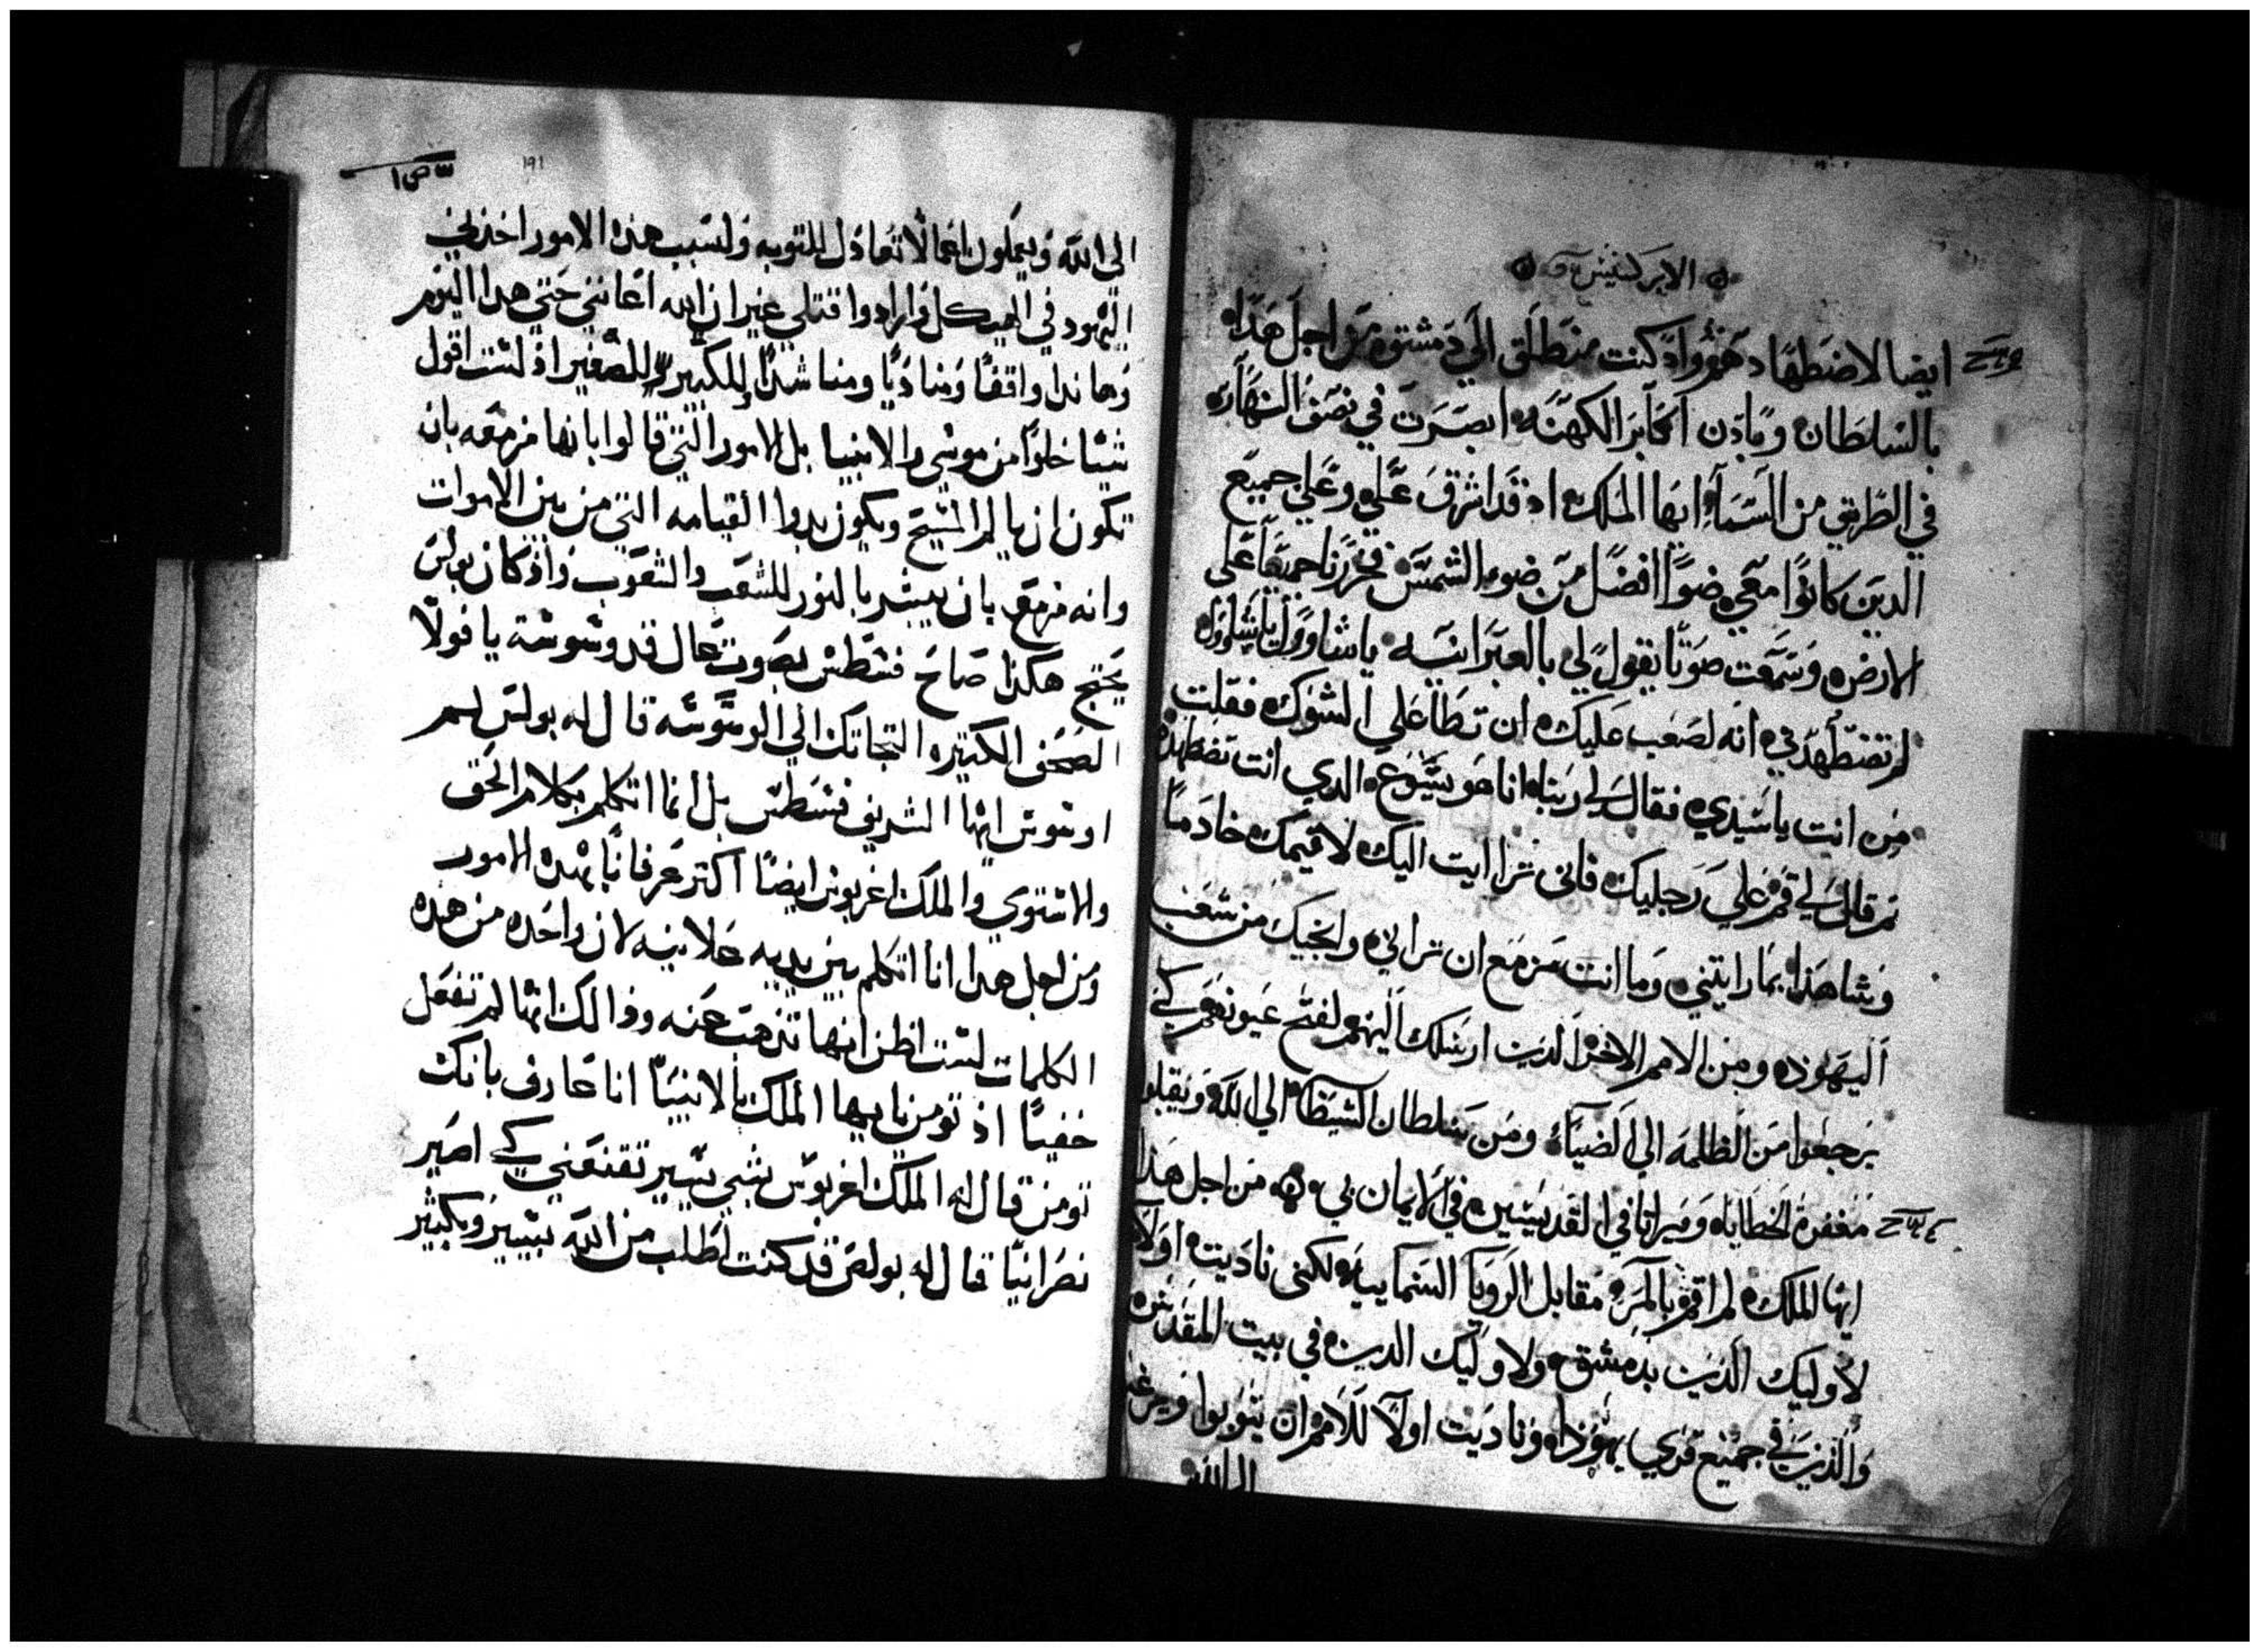 الابركسيس
ايضا لاضطهادهم واذ كنت منطلق الي دمشق من اجل هذا
بالسلطان وباذن اكابر الكهنه ابصرت في نصف النهار
في الطريق من السماء ايها الملك اذ قد اشرق علي وعلي جميع
الدين كانوا معي ضوا افضل من ضوء الشمس فخررنا جميعا علي
الارض وسمعت صوتا يقول لي بالعبرانيه ياشاوول ياشاوول
لم تضطهدني انه لصعب عليك ان تطا علي الشوك فقلت
من انت ياسيدي فقال لي ربنا انا هو يسوع الدي انت تضطهده
تم قال لي قم علي رجليك فاني ترا ايت اليك لاقيمك خادما
وشاهدا بما رايتني وما انت مزمع ان تراني وانجيك من شعب
اليهود ومن الامم الاخر الذين ارسلك اليهم لفتح عيونهم كي
يرجعوا من الظلمه الي الضياء ومن سلطان الشيطان الي الله ويقبلوا
مغفرة الخطايا وميراتا في القديسين في الايمان بي من اجل هذا
ايها الملك لم اقم بالمره مقابل الرويا السماييه لكني ناديت اولا
لاوليك الذين بدمشق ولاوليك الدين في بيت المقدس
والذين في جميع قري يهوذا وناديت اولا للامم ان يتوبوا ويرغ
الي الله
١٩١
الي الله ويعملون اعمالا تعادل للتوبه ولسبب هذه الامور اخذني
اليهود في الهيكل وارادوا قتلي غير ان الله اعانني حتي هدا اليوم
وهاندا واقفا ومناديا ومناشدا للكبير وللصغير اذ لست اقول
شيا خلوا من موسي والانبيا بل الامور التي قالوا بانها مزمعه بان
تكون ان يالم المسيح ويكون بدوا القيامه التي من بين الاموات
وانه مزمع بان يبشر بالنور للشعب والشعوب واذ كان بولس
يحتج هكذا صاح فسطس بصوت عال قد وسوسة يا فولا
الصحف الكتيره التجاتك الي الوسوسه قال له بولس لم
اوسوس ايها الشريف فسطس بل انما اتكلم بكلام الحق
والاستوي والملك اغربوس ايضا اكتر عرفانا بهده الامور
ومن اجل هدا انا اتكلم بين يديه علانيه لان واحده من هذه
الكلمات لست اظن انها تنزهت عنه وذالك انها لم تفعل
خفيا اذ تومن يا ايها الملك بالانبيا انا عارف بانك
تومن قال له الملك اغربوس بشي يسير تقنعني كي اصير
نصرانيا قال له بولص قد كنت اطلب من الله بيسير وبكثير